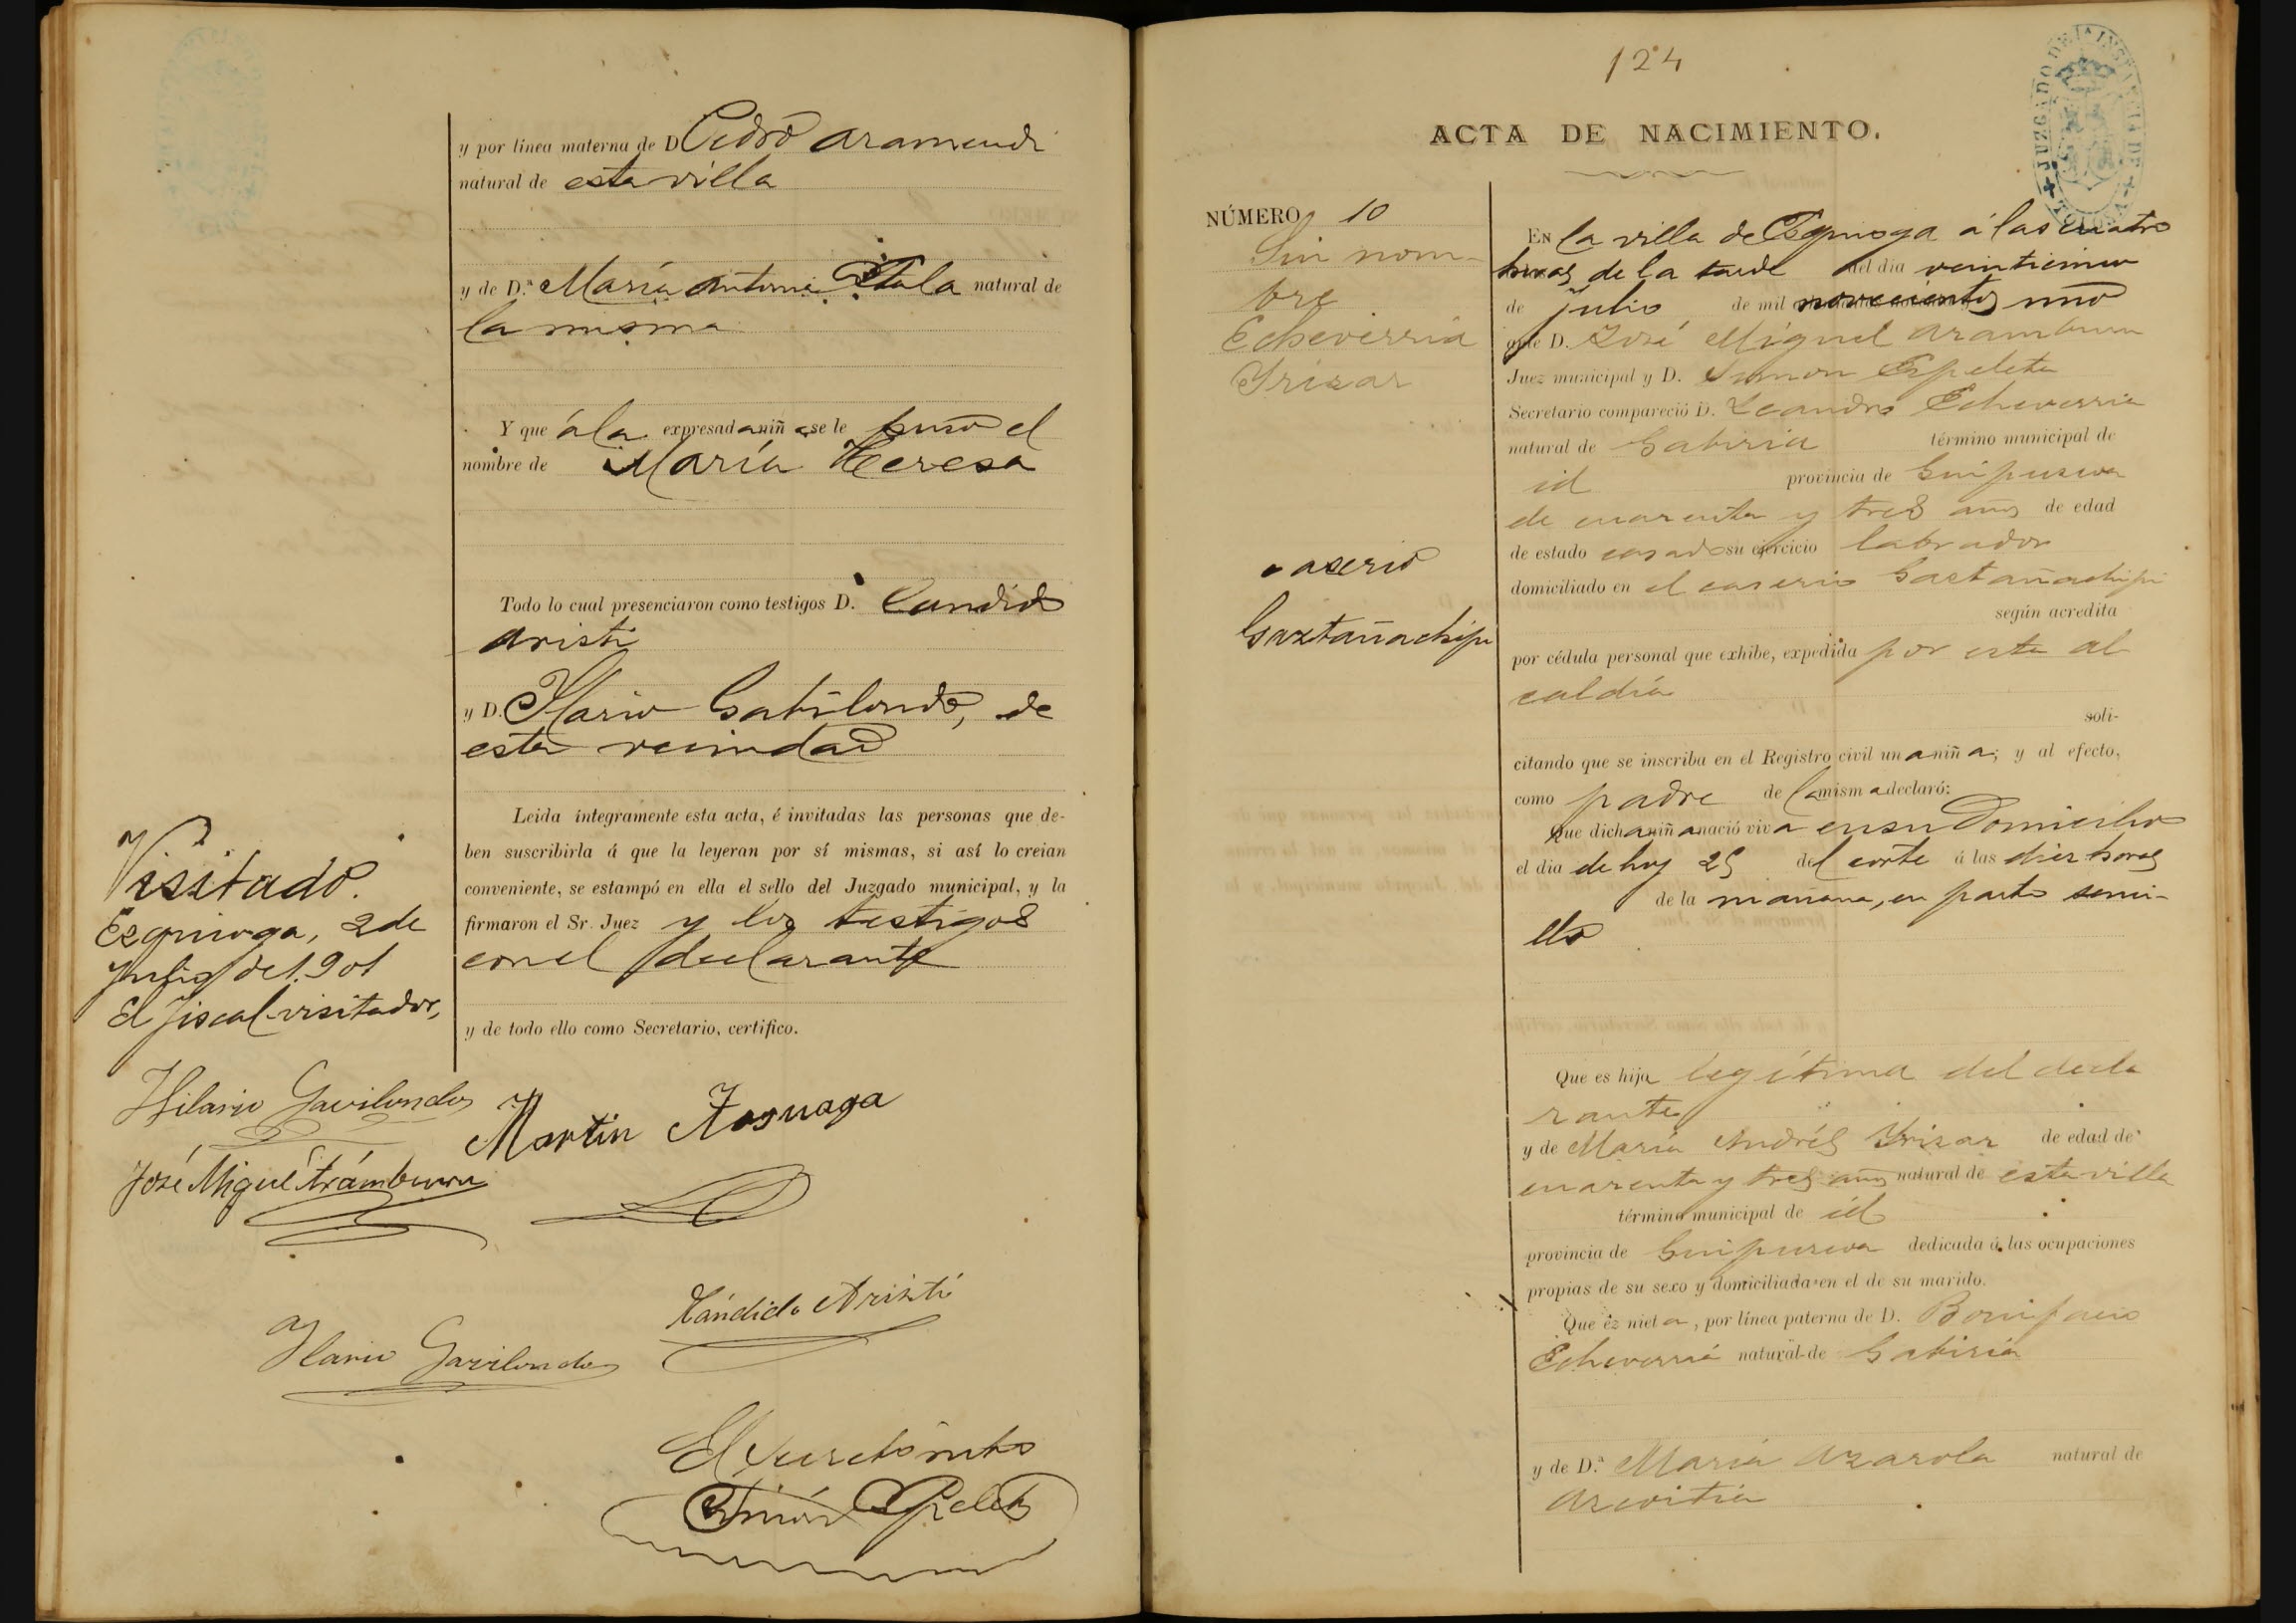 y por línea materna de D Pedro Aramendi
natural de esta villa
y de D.ª María Antonia natural de
la misma
Y que á la expresada niña se le puso el
nombre de María Teresa
Todo lo cual presenciaron como testigos D. Candido
Aristi
y D. Ylario Gabilondo, de
esta vecindad
Leida íntegramente esta acta, é invitadas las personas que de-
ben suscribirla á que la leyeran por sí mismas, si así lo creían
conveniente, se estampó en ella el sello del Juzgado municipal, y la
firmaron el Sr. Juez y los testigos
con el declarante
y de todo ello como Secretario, certifico.
Visitado.
Ezquioga, 2 de
Julio de 1901
El fiscal visitador,
Hilario Gavilondo
Martin
José Miguel Aramburu
Cándido Aristi
Ilario Gavilondo
El Secretario
Simón Espeleta
124
ACTA DE NACIMIENTO.
JUZGADO DE 1ª INSTANCIA DE
NÚMERO 10
Sin nom-
bre
Echeverria
Yrizar
caserio
Gaztañachipi
En la villa de Ezquioga á las cuatro
horas de la tarde del dia veinticinco
de julio de mil novecientos uno
ante D. José Miguel Aramburu
Juez municipal y D. Simon Espeleta
Secretario compareció D. Leandro Echeverria
natural de Gabiria término municipal de
id provincia de Guipuzcoa
de cuarenta y tres años de edad
de estado casado su ejercicio labrador
domiciliado en el caserio Gaztañachipi
según acredita
por cédula personal que exhibe, expedida por esta al
caldía
soli-
citando que se inscriba en el Registro civil una niña; y al efecto,
como padre de la misma declaró:
Que dicha niña nació viva en su Domicilio
el dia de hoy 25 del corte á las diez horas
de la mañana, en parto senci-
llo
Que es hija legítima del decla
rante
y de María Andrés Yrizar de edad de
cuarenta y tres años natural de esta villa
término municipal de id
provincia de Guipuzcoa dedicada á las ocupaciones
propias de su sexo y domiciliada en el de su marido.
Que es nieta, por línea paterna de D. Bonifacio
Echeverria natural de Gabiria
y de D.ª María Azarola natural de
Azcoitia